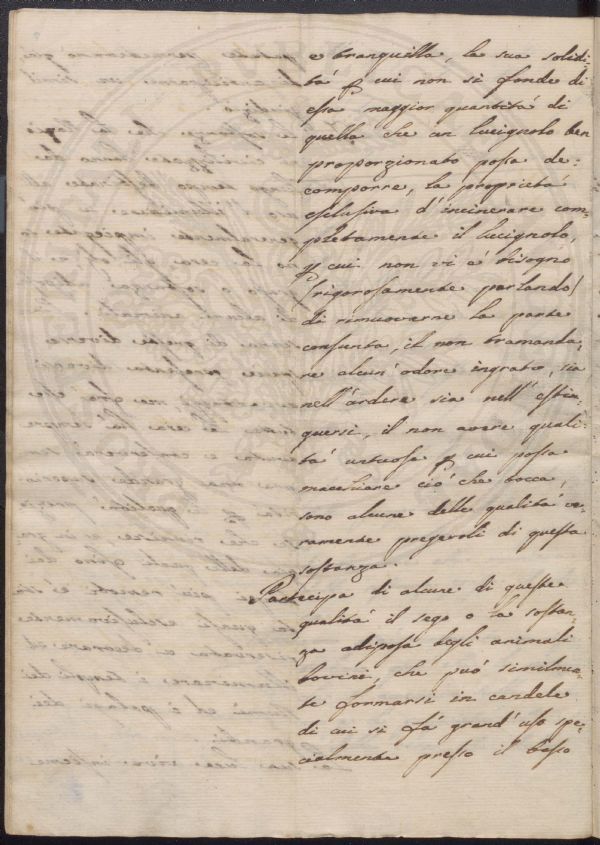 e tranquilla, la sua solidi-
tá p cui non si fonde di
essa maggior quantitá di
quella che un lucignolo ben
proporzionato possa de-
comporre, la proprietá
esclusiva d'incinerare com-
pletamente il lucignolo,
p cui non vi é bisogno
(rigorosamente parlando)
di rimuoverne la parte
consunta, il non tramanda-
re alcun'odore ingrato, sia
nell'ardere sia nell'estin-
guersi, il non avere quali-
tá untuose p cui possa
macchiare ció che tocca,
sono alcune delle qualitá ve-
ramente pregevoli di questa
sostanza.
Partecipa di alcune di queste
qualitá il sego o la sostan-
za adiposa degli animali
bovini, che puó similmen-
te formarsi in candele
di cui si fá grand'uso spe-
cialmente presso il basso